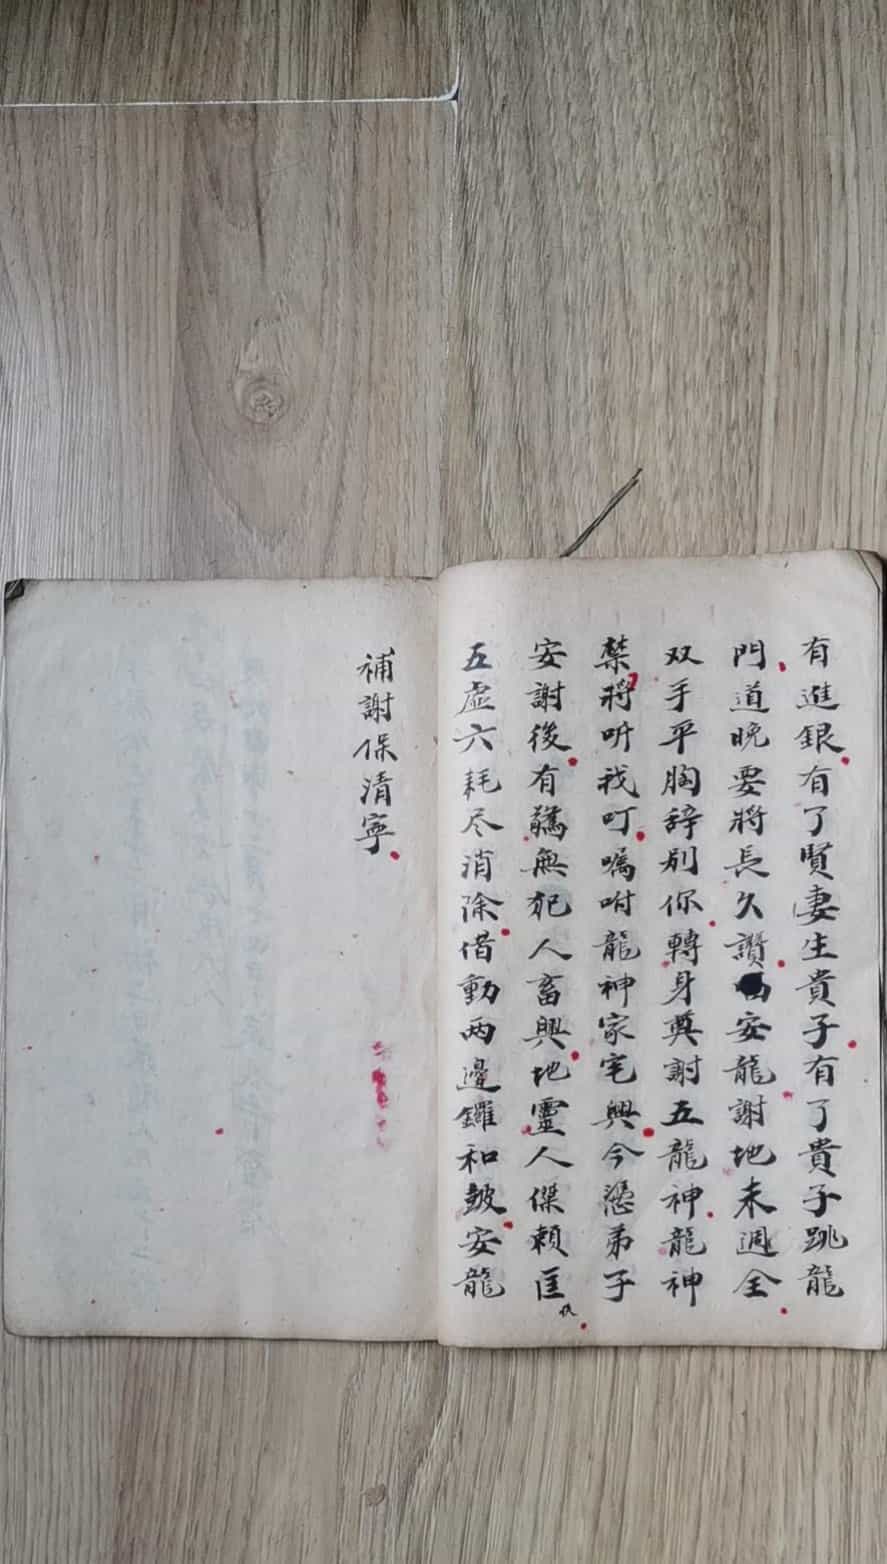 有進銀有了賢妻生貴子有了貴子跳龍
門道晚要將長久讚安龍謝地未週全
双手平胸辞别你轉身奠謝五龍神龍神
禁將听我叮嘱咐龍神家宅興今憑弟子
安謝後有無犯人畜興地靈人傑賴匡
五虛六耗尽消除借動両邊鑼和皷安龍
補謝保清寧